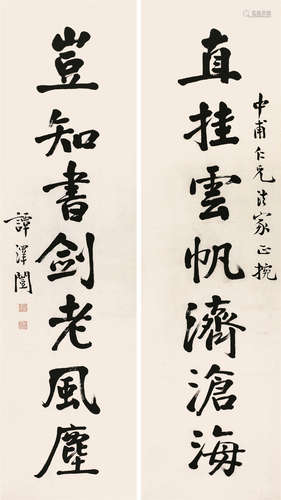 中甫仁兄法家正挽
直挂雲帆濟滄海
豈知書劍老風塵
譚澤闓